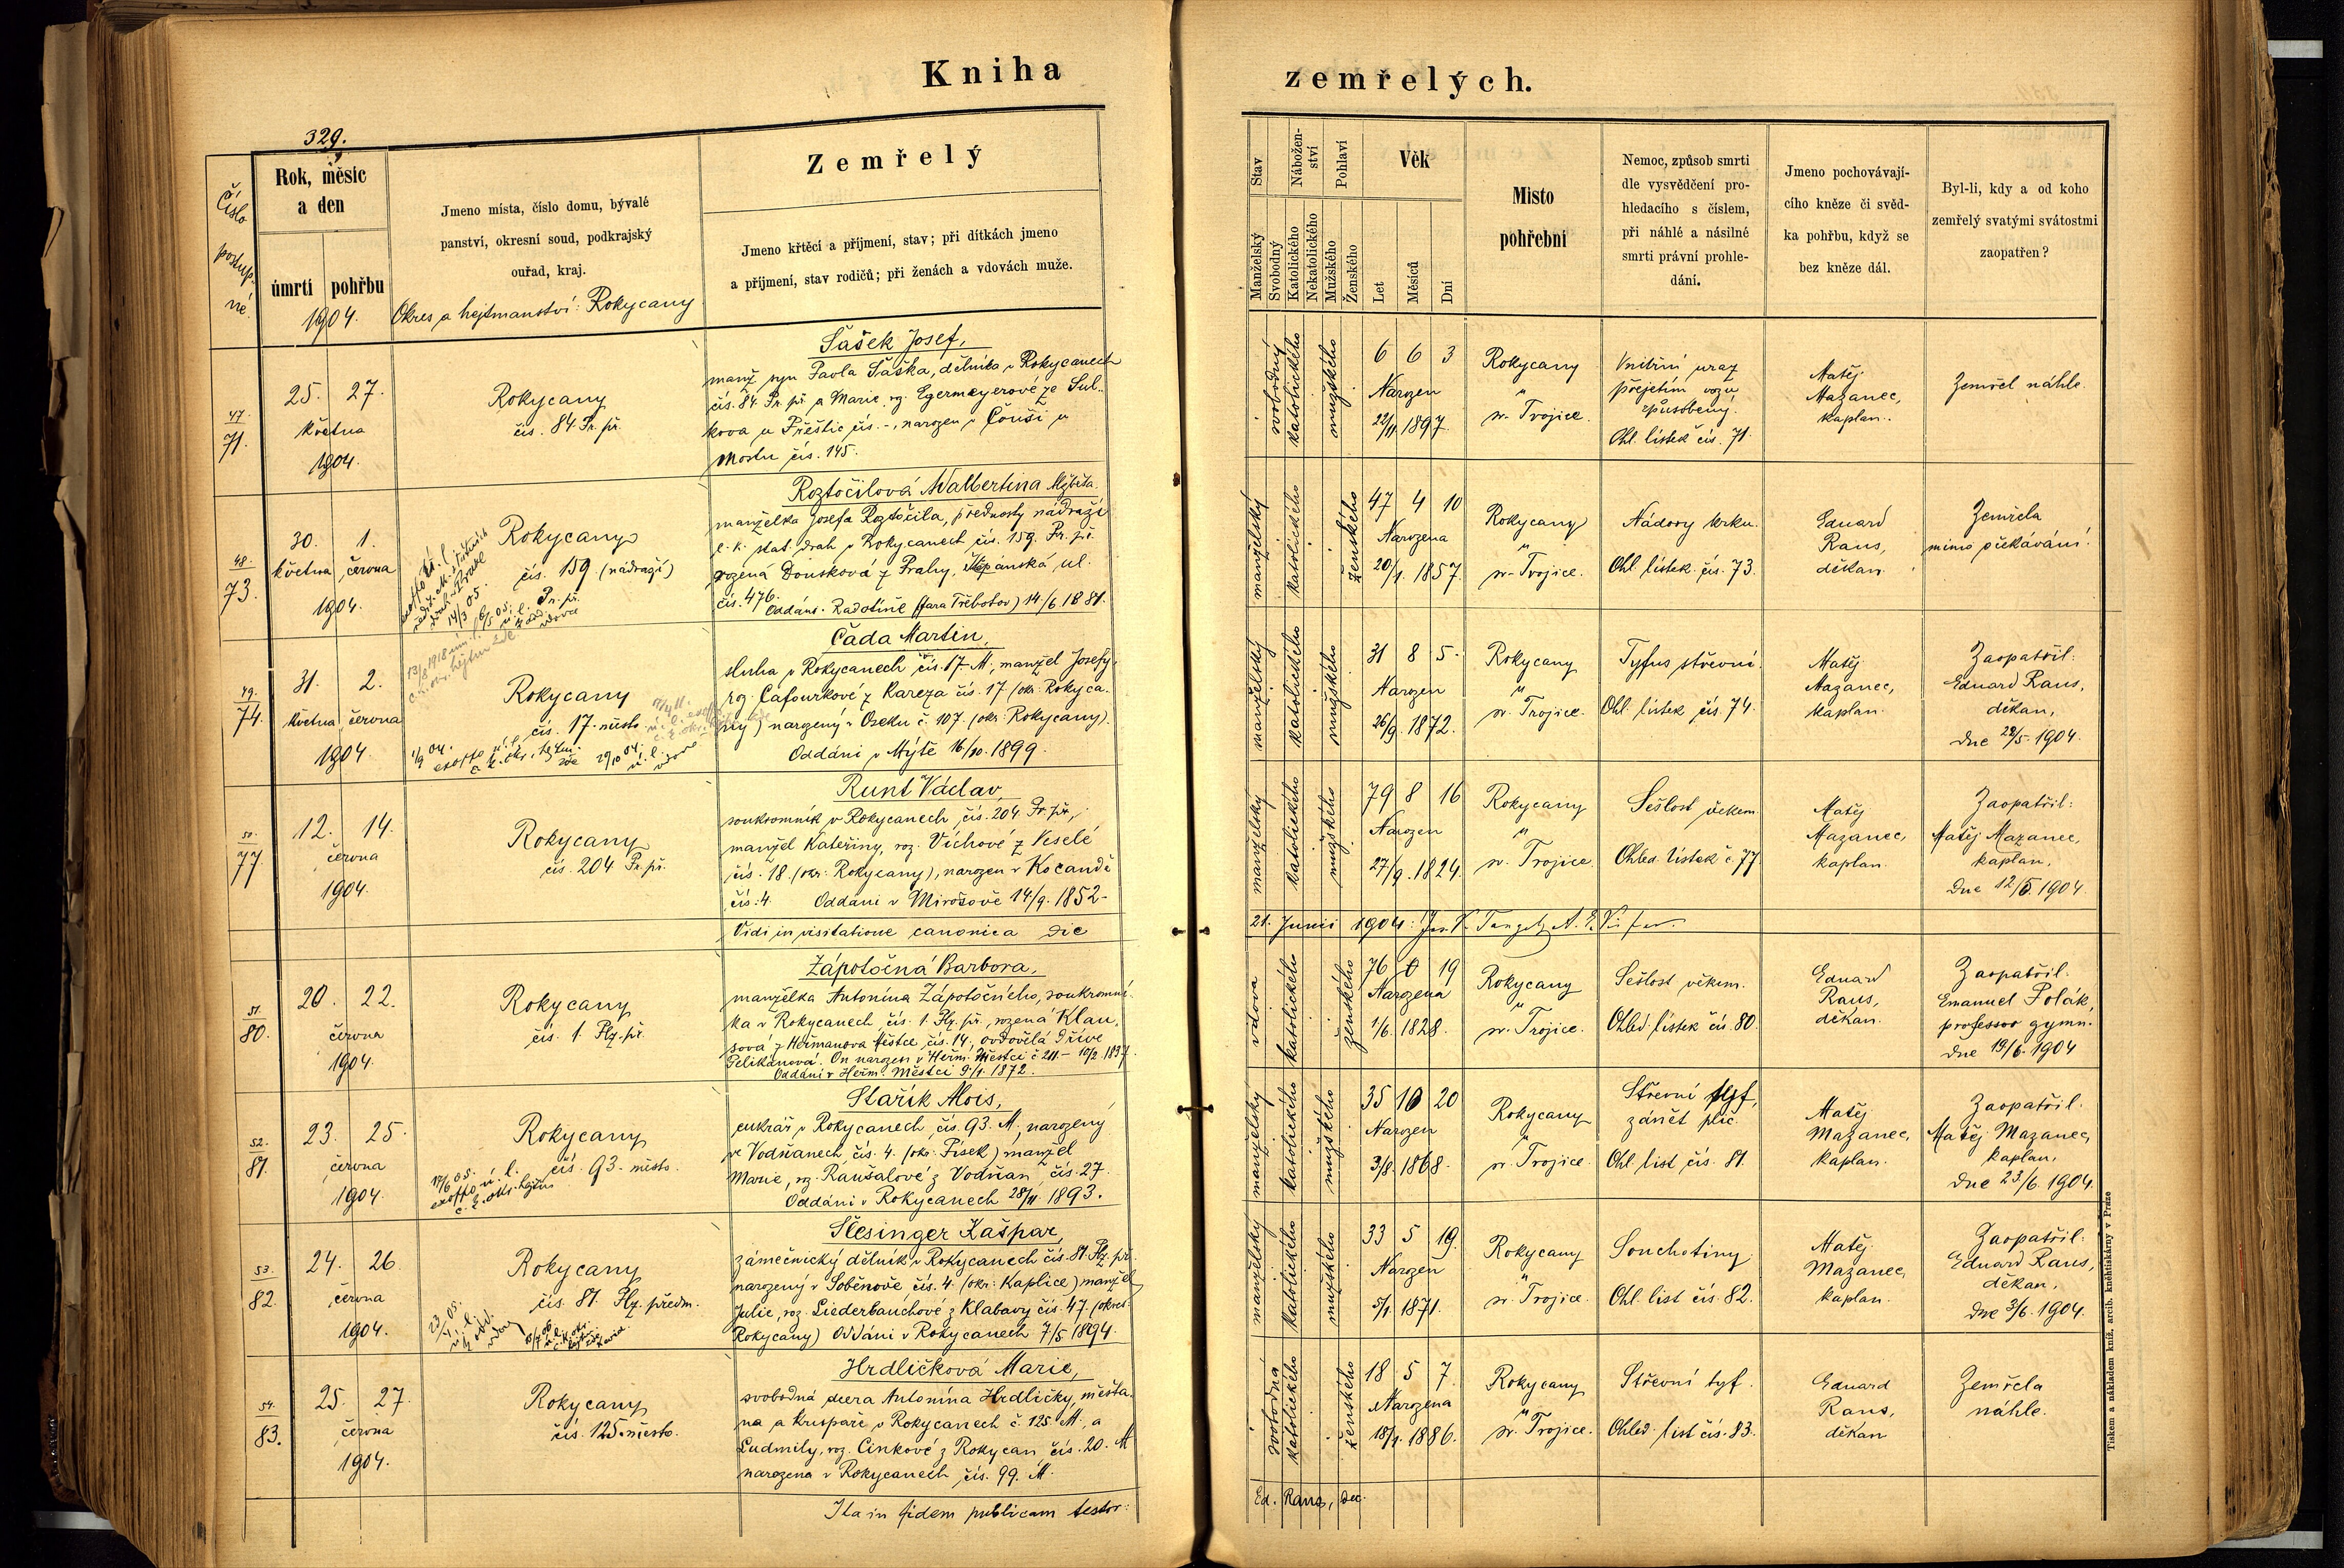 Kniha zemřelých.
329.
Číslo postup. né.
Rok, měsíc a den
úmrtí pohřbu
1904.
Jmeno místa, číslo domu, bývalé
panství, okresní soud, podkrajský
ouřad, kraj.
Okres a hejtmanství: Rokycany
Zemřelý
Jmeno křtěcí a příjmení, stav; při dítkách jmeno
a příjmení, stav rodičů; při ženách a vdovách muže.
Stav
Manželský
Svobodný
Nábožen-
ství
Katolického
Nekatolického
Pohlaví
Mužského
Ženského
Věk
Let
Měsíců
Dní
Místo
pohřební
Nemoc, způsob smrti
dle vysvědčení pro-
hledacího s číslem,
při náhlé a násilné
smrti právní prohle-
dání.
Jmeno pochovávají-
cího kněze či svěd-
ka pohřbu, když se
bez kněze dál.
Byl-li, kdy a od koho
zemřelý svatými svátostmi
zaopatřen?
47.
71.
25. 27.
května
1904.
Rokycany
čís. 84 Pr. př.
Šašek Josef,
manž. syn Pavla Šaška, dělníka v Rokycanech
čís. 84 Pr. př. a Marie, roz. Egermeyerové ze Sul-
kova u Přeštic čís. -, narozen v Čouši u
Mostu čís. 145.
svobodný
katolického
mužského
6 6 3
Narozen
22/11. 1897.
Rokycany
"
sv. Trojice.
Vnitřní uraz
přejetím vozu
způsobený.
Ohl. lístek čís. 71.
Matěj
Mazanec,
kaplan.
Zemřel náhle.
48.
73.
30. 1.
května června
1904.
Rokycany
čís. 159 (nádraží)
Pr. př.
14/3 05.
Roztočilová Walbertina
manželka Josefa Roztočila, přednosty nádraží
c. k. stat. drah v Rokycanech čís. 159. Pr. př.
rozená Doušková z Prahy, Štěpánská ul.
čís. 476. Oddáni v Radotíně (fara Třebotov) 14/6 1881.
manželský
katolického
ženského
47 4 10
Narozena
20/1. 1857.
Rokycany
"
sv. Trojice.
Nádory krku.
Ohl. lístek čís. 73.
Eduard
Raus,
děkan.
Zemřela
mimo očekávání.
49.
74.
31. 2.
května června
1904.
Rokycany
čís. 17. město
Čada Martin,
sluha v Rokycanech čís. 17. M., manžel Josefy,
roz. Cafourkové z Kařeza čís. 17. (okr. Rokyca-
ny) narozený v Oseku č. 107. (okr. Rokycany).
Oddáni v Mýtě 16/10. 1899.
manželský
katolického
mužského
31 8 5
Narozen
26/9. 1872.
Rokycany
"
sv. Trojice.
Tyfus střevní.
Ohl. lístek čís. 74.
Matěj
Mazanec,
kaplan.
Zaopatřil:
Eduard Raus,
děkan,
dne 28/5. 1904.
50.
77.
12. 14.
června
1904.
Rokycany
čís. 204 Pr. př.
Runt Václav,
soukromník v Rokycanech, čís. 204. Pr. př.,
manžel Kateřiny, roz. Víchové z Veselé
čís. 18. (okr. Rokycany), narozen v Kocandě
čís. 4. Oddáni v Mirošově 14/9. 1852.
manželský
katolického
mužského
79 8 16
Narozen
27/9. 1824.
Rokycany
"
sv. Trojice.
Sešlost věkem.
Ohled. lístek č. 77.
Matěj
Mazanec,
kaplan.
Zaopatřil:
Matěj Mazanec,
kaplan,
dne 12/6. 1904.
Vidi in visitatione canonica die
21. Junii 1904:
51.
80.
20. 22.
června
1904.
Rokycany
čís. 1 Plz. př.
Zápotočná Barbora,
manželka Antonína Zápotočného, soukromní-
ka v Rokycanech, čís. 1. Plz. př., rozená Klau-
sová z Heřmanova Městce, čís. 14, ovdovělá dříve
Pelikánová. On narozen v Heřm. Městci č. 211. - 10/2 1837.
Oddáni v Heřm. Městci 9/1. 1872.
vdova
katolického
ženského
76 0 19
Narozena
1/6. 1828.
Rokycany
"
sv. Trojice.
Sešlost věkem.
Ohled. lístek čís. 80.
Eduard
Raus,
děkan.
Zaopatřil:
Emanuel Polák,
professor gymn.
dne 19/6. 1904
52.
81.
23. 25.
června
1904.
Rokycany
čís. 93. město.
Stařík Alois,
cukrář v Rokycanech, čís. 93. M., narozený
ve Vodňanech, čís. 4. (okr. Písek) manžel
Marie, roz. Raušalové z Vodňan, čís. 27.
Oddáni v Rokycanech 28/11 1893.
manželský
katolického
mužského
35 10 20
Narozen
3/8. 1868.
Rokycany
"
sv. Trojice.
Střevní tyf,
zánět plic.
Ohl. list. čís. 81.
Matěj
Mazanec,
kaplan.
Zaopatřil:
Matěj Mazanec,
kaplan,
dne 23/6. 1904.
53.
82.
24. 26.
června
1904.
Rokycany
čís. 81. Plz. předm.
Šlesinger Kašpar,
zámečnický dělník v Rokycanech čís. 81. Plz. př.
narozený v Soběnově, čís. 4. (okr. Kaplice) manžel
Julie, roz. Liederbauchové z Klabavy čís. 47. (okres
Rokycany) Oddáni v Rokycanech 7/5 1894.
manželský
katolického
mužského
33 5 19.
Narozen
5/1. 1871.
Rokycany
"
sv. Trojice.
Souchotiny
Ohl. list čís. 82.
Matěj
Mazanec,
kaplan.
Zaopatřil:
Eduard Raus,
děkan,
dne 3/6. 1904.
54.
83.
25. 27.
června
1904.
Rokycany
čís. 125. město.
Hrdličková Marie,
svobodná dcera Antonína Hrdličky, měšťa-
na a krupaře v Rokycanech č. 125 M., a
Ludmily, roz. Cinkové z Rokycan čís. 20. M.
narozena v Rokycanech čís. 99. M.
svobodná
katolického
ženského
18 5 7.
Narozena
18/1. 1886.
Rokycany
"
sv. Trojice.
Střevní tyf.
Ohled. list čís. 83.
Eduard
Raus,
děkan
Zemřela
náhle.
Ita in fidem publicam testor:
Ed. Raus, dec.
Tiskem a nákladem kníž. arcib. knihtiskárny v Praze